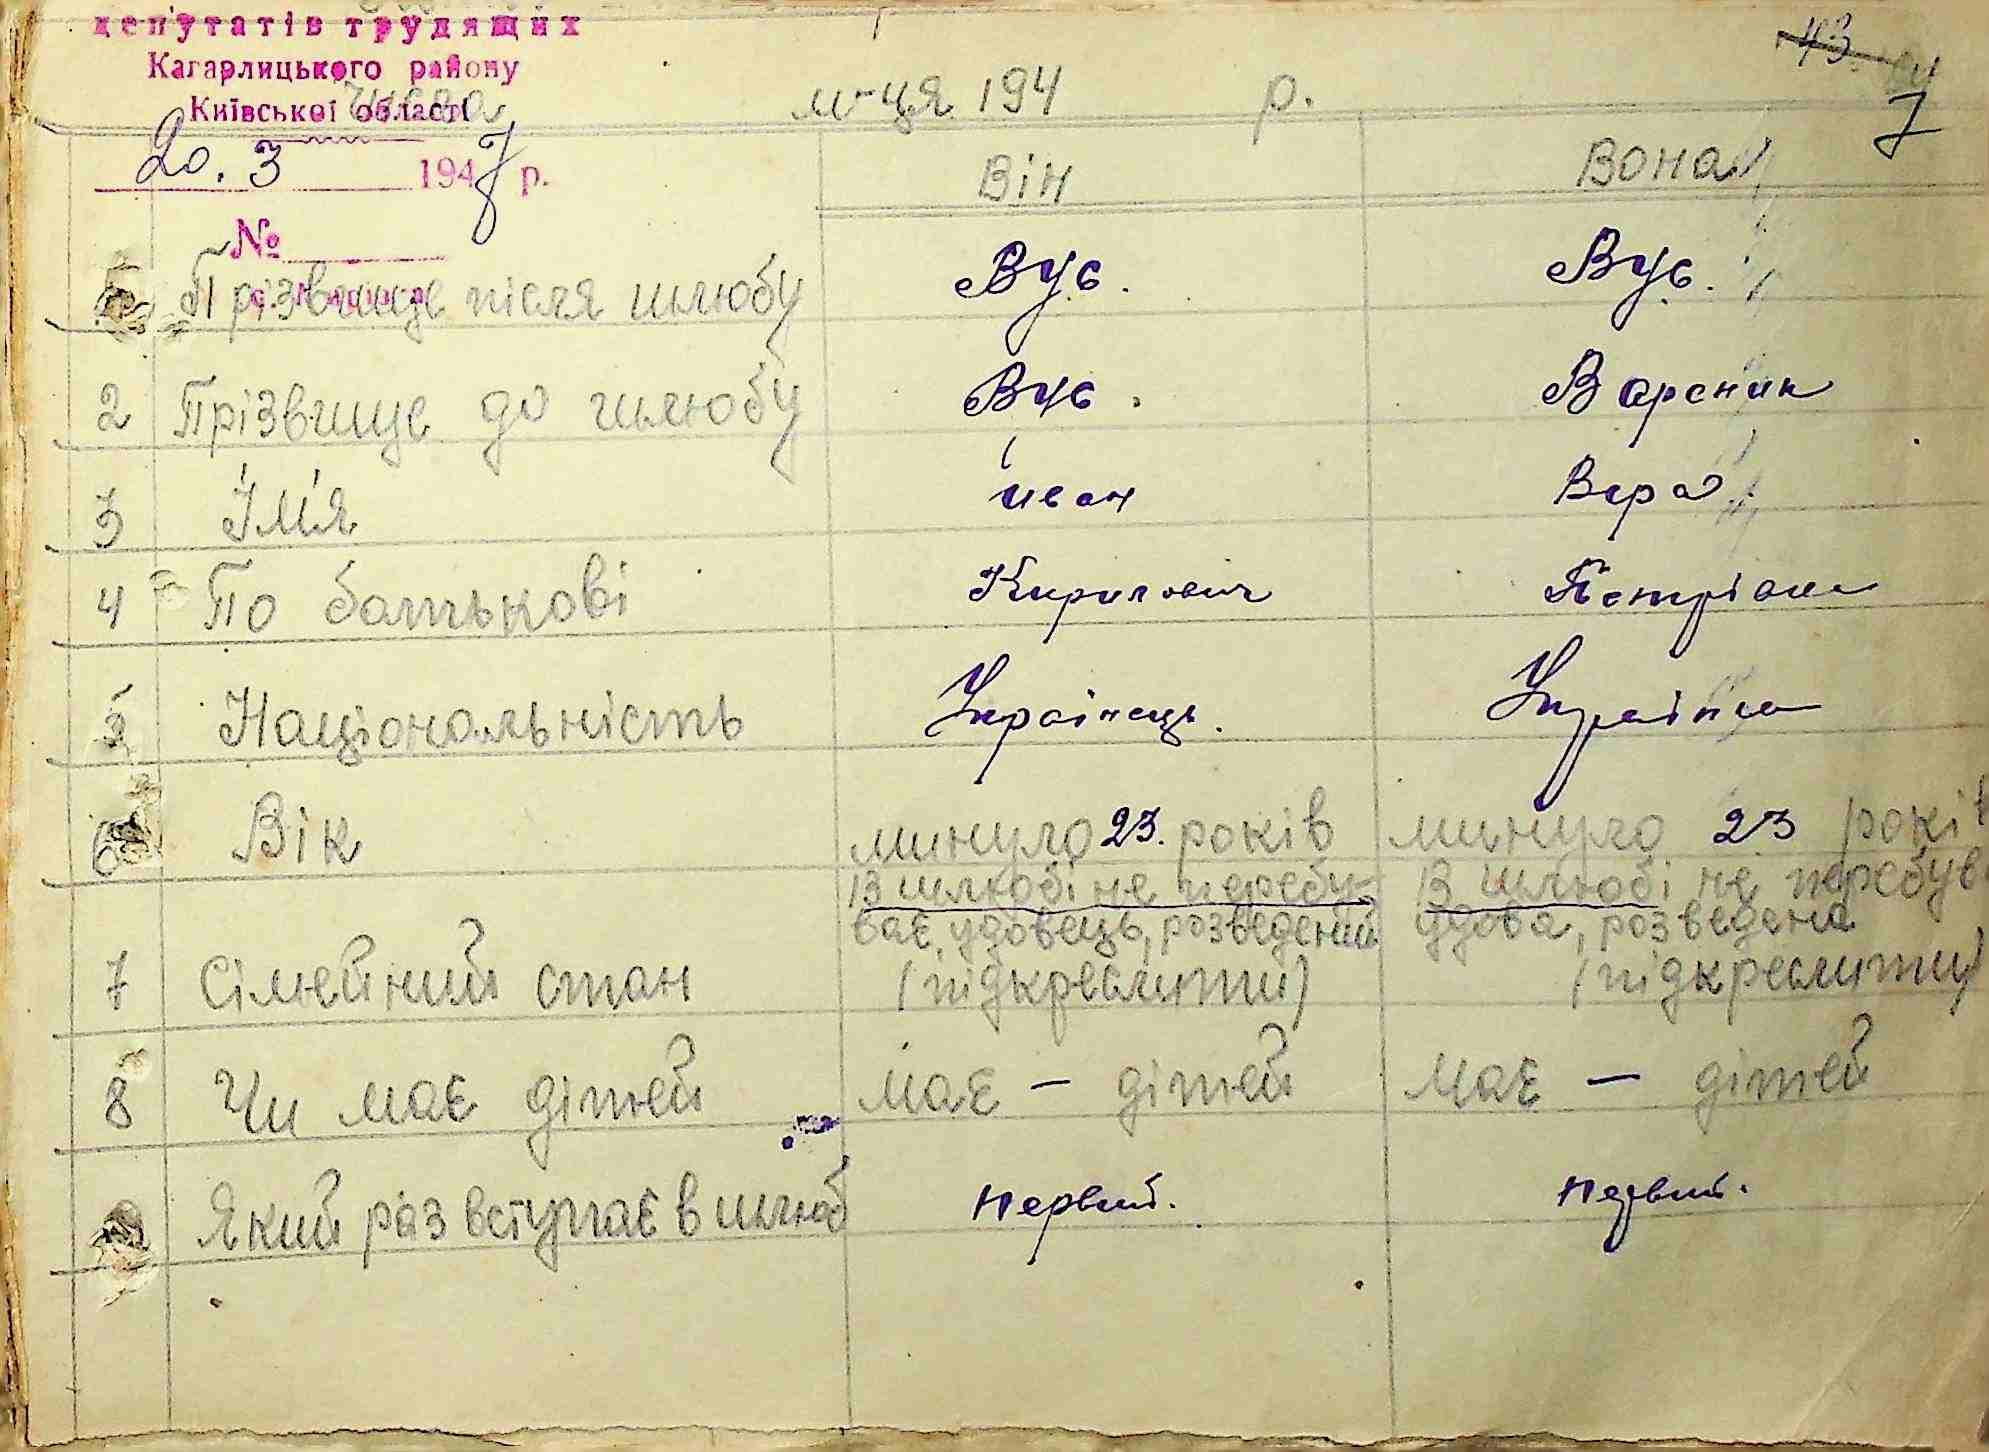 депутатів трудящих
Кагарлицького району
Київської області
числа м-ця 194 р.
43
7
20.3 1947 р.
№
Він Вона
Прізвище після шлюбу Вус. Вус.
2 Прізвище до шлюбу Вус. Варсник
3 Ім'я Иван Вера
4 По батькові Кирилович Петрівна
5 Національність Українець. Українка
6 Вік минуло 23. років минуло 23 років
7 Сімейний стан В шлюбі не перебу- В шлюбі не перебув
ває, удовець, розведений удова, розведена
(підкреслити) (підкреслити)
8 Чи має дітей має – дітей має – дітей
Який раз вступає в шлюб первий. первий.